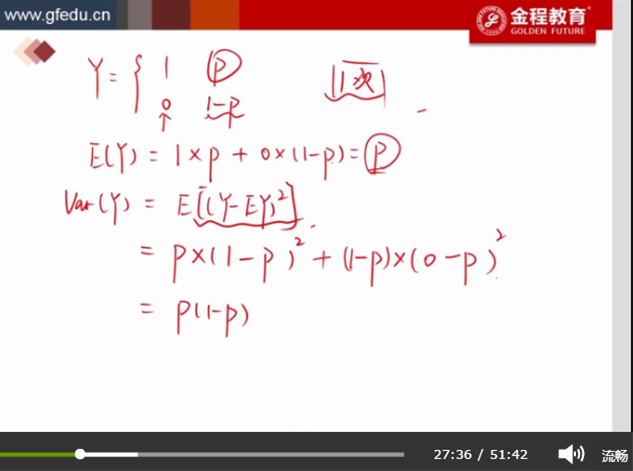 www.gfedu.cn
金程教育
GOLDEN FUTURE
Y = { 1 p
0 1-p
1次
E(Y) = 1×p + 0×(1-p) = p
Var(Y) = E[(Y-EY)²]
= p×(1-p)² + (1-p)×(0-p)²
= p(1-p)
27:36 / 51:42
流畅